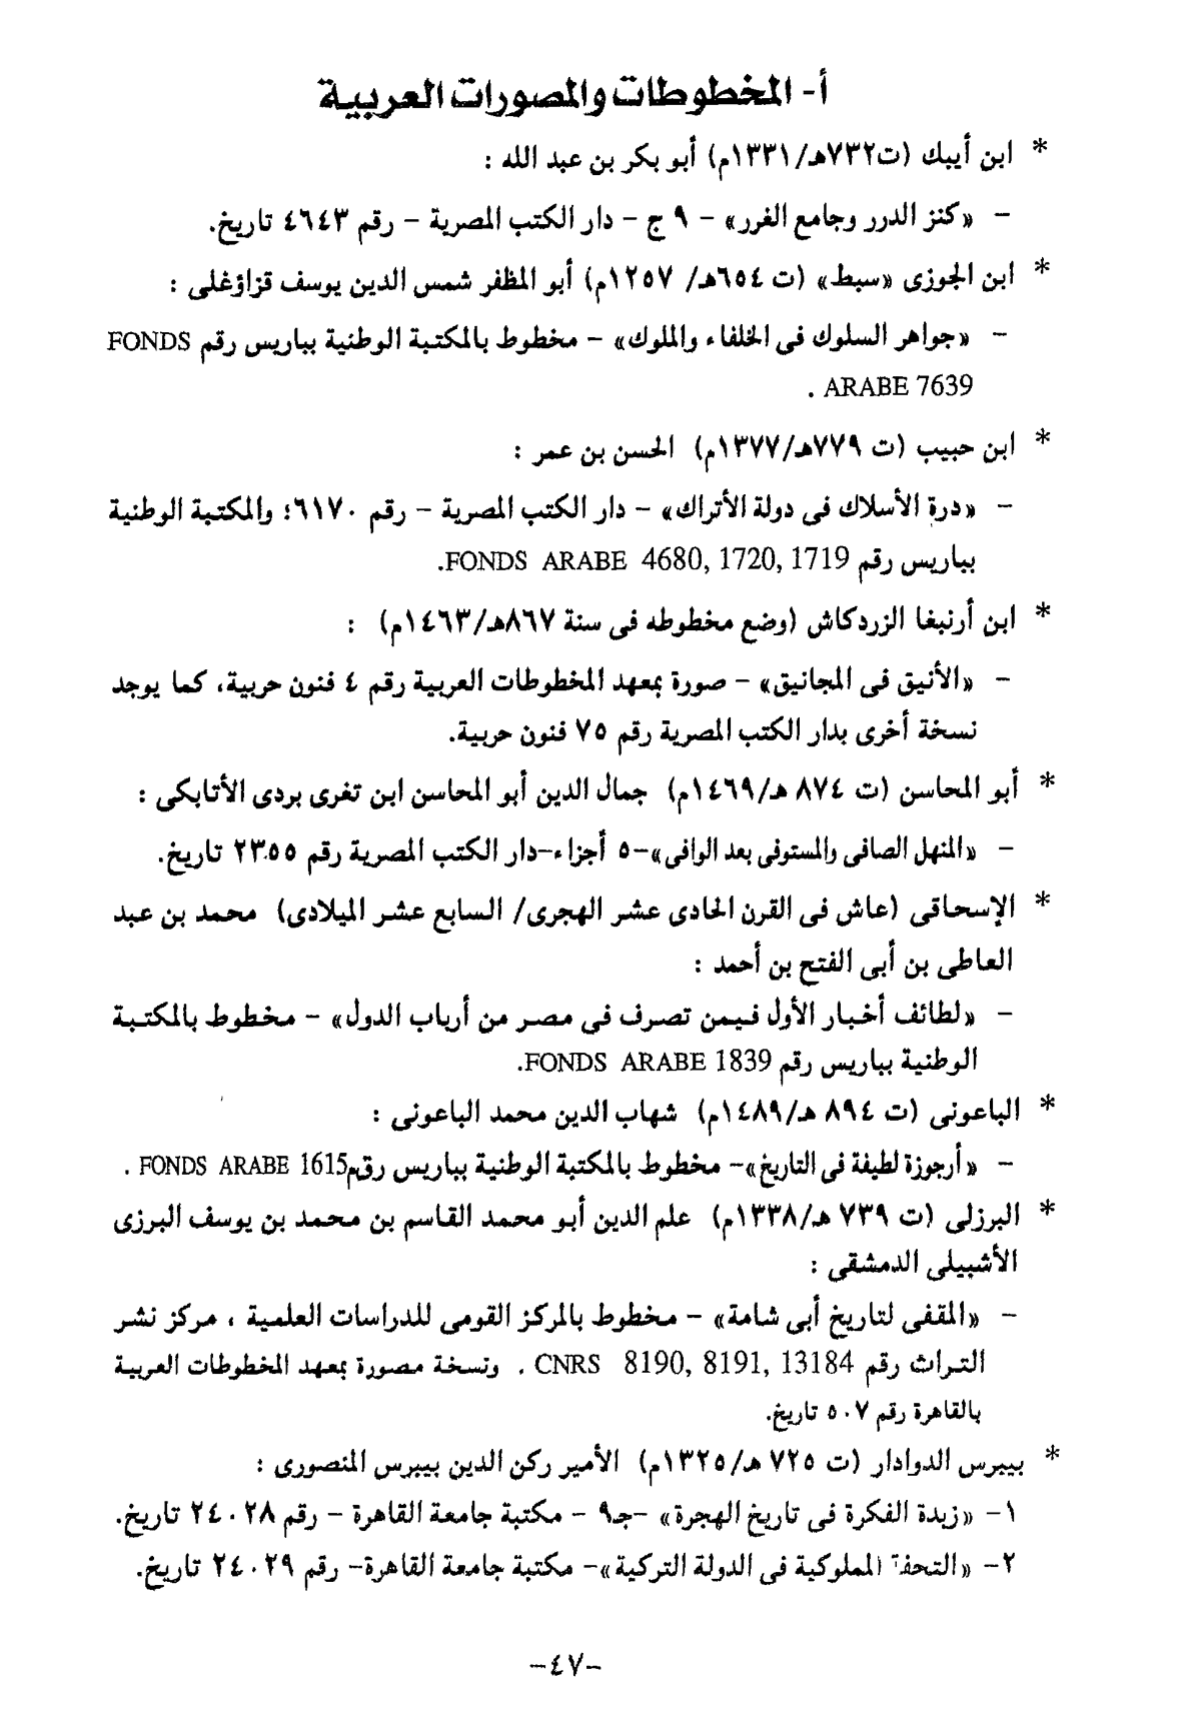 أ- المخطوطات والمصورات العربية
* ابن أيبك (ت٧٣٢هـ/١٣٣١م) أبو بكر بن عبد الله :
- «كنز الدرر وجامع الغرر» - ٩ ج - دار الكتب المصرية - رقم ٤٦٤٣ تاريخ.
* ابن الجوزى «سبط» (ت ٦٥٤هـ/ ١٢٥٧م) أبو المظفر شمس الدين يوسف قزاؤغلى :
- «جواهر السلوك فى الخلفاء والملوك» - مخطوط بالمكتبة الوطنية بباريس رقم FONDS
ARABE 7639 .
* ابن حبيب (ت ٧٧٩هـ/١٣٧٧م) الحسن بن عمر :
- «درة الأسلاك فى دولة الأتراك» - دار الكتب المصرية - رقم ٦١٧٠؛ والمكتبة الوطنية
بباريس رقم FONDS ARABE 4680, 1720, 1719.
* ابن أرنبغا الزردكاش (وضع مخطوطه فى سنة ٨٦٧هـ/١٤٦٣م) :
- «الأنيق فى المجانيق» - صورة بمعهد المخطوطات العربية رقم ٤ فنون حربية، كما يوجد
نسخة أخرى بدار الكتب المصرية رقم ٧٥ فنون حربية.
* أبو المحاسن (ت ٨٧٤ هـ/١٤٦٩م) جمال الدين أبو المحاسن ابن تغرى بردى الأتابكى :
- «المنهل الصافى والمستوفى بعد الوافى»-٥ أجزاء-دار الكتب المصرية رقم ٢٣٥٥ تاريخ.
* الإسحاقى (عاش فى القرن الحادى عشر الهجرى/ السابع عشر الميلادى) محمد بن عبد
العاطى بن أبى الفتح بن أحمد :
- «لطائف أخبار الأول فيمن تصرف فى مصر من أرباب الدول» - مخطوط بالمكتبة
الوطنية بباريس رقم FONDS ARABE 1839.
* الباعونى (ت ٨٩٤ هـ/١٤٨٩م) شهاب الدين محمد الباعونى :
- «أرجوزة لطيفة فى التاريخ»- مخطوط بالمكتبة الوطنية بباريس رقم FONDS ARABE 1615 .
* البرزلى (ت ٧٣٩ هـ/١٣٣٨م) علم الدين أبو محمد القاسم بن محمد بن يوسف البرزى
الأشبيلى الدمشقى :
- «المقفى لتاريخ أبى شامة» - مخطوط بالمركز القومى للدراسات العلمية ، مركز نشر
التراث رقم CNRS 8190, 8191, 13184 . ونسخة مصورة بمعهد المخطوطات العربية
بالقاهرة رقم ٥٠٧ تاريخ.
* بيبرس الدوادار (ت ٧٢٥ هـ/١٣٢٥م) الأمير ركن الدين بيبرس المنصورى :
١- «زبدة الفكرة فى تاريخ الهجرة» -جـ٩ - مكتبة جامعة القاهرة - رقم ٢٤٠٢٨ تاريخ.
٢- «التحفة الملوكية فى الدولة التركية»- مكتبة جامعة القاهرة- رقم ٢٤٠٢٩ تاريخ.
-٤٧-